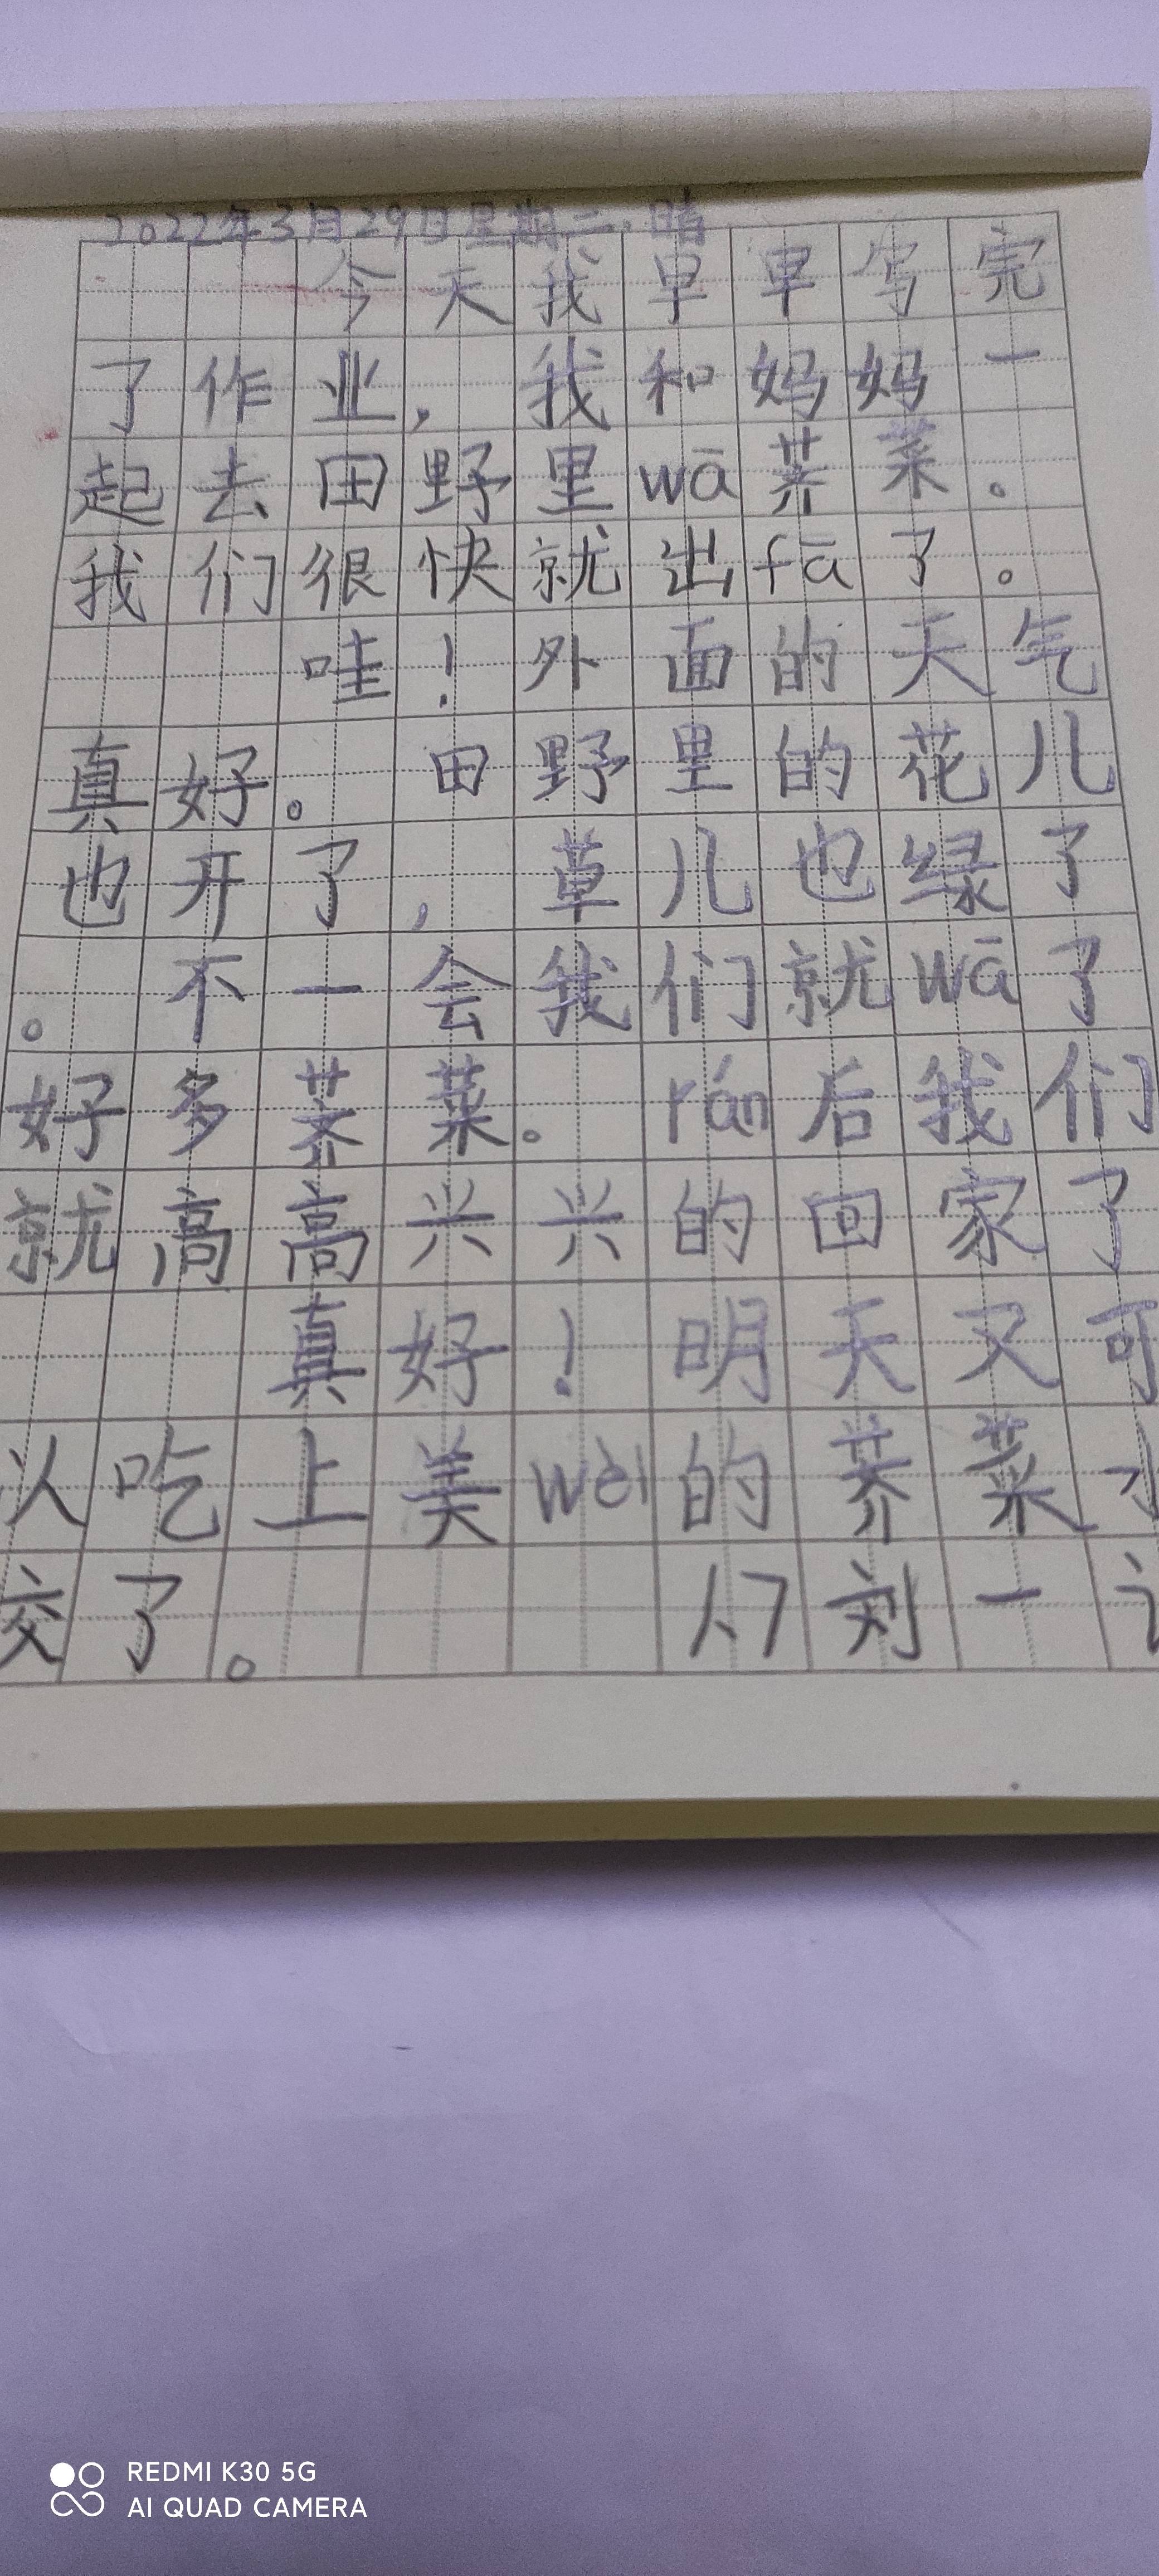 2022年3月29日星期二.晴
今天我早早写完
了作业，我和妈妈一
起去田野里wā荠菜。
我们很快就出fā了。
哇！外面的天气
真好。田野里的花儿
也开了，草儿也绿了
。不一会我们就wā了
好多荠菜。rán后我们
就高高兴兴的回家了
真好！明天又可
以吃上美wèi的荠菜
交了。刘一
REDMI K30 5G
AI QUAD CAMERA